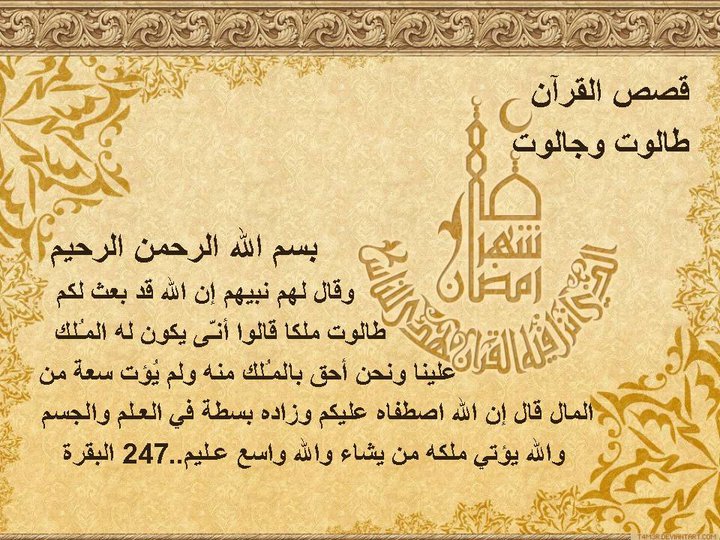 قصص القرآن
طالوت وجالوت
شهر
رمضان
الذي أنزل فيه القرآن هدى للناس
بسم الله الرحمن الرحيم
وقال لهم نبيهم إن الله قد بعث لكم
طالوت ملكا قالوا أنـّى يكون له المـُلك
علينا ونحن أحق بالمـُلك منه ولم يُؤت سعة من
المال قال إن الله اصطفاه عليكم وزاده بسطة في العـلم والجسم
والله يؤتي ملكه من يشاء والله واسع عـليم..247 البقرة
T4M3R.DEVIANTART.COM